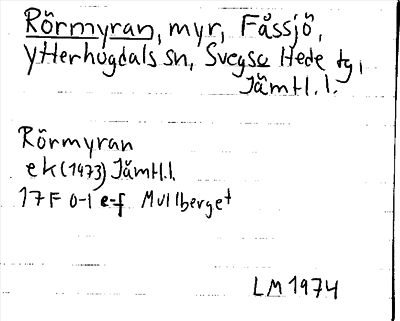 Rörmyran, myr, Fåssjö,
Ytterhogdals sn, Svegs o Hede tg,
Jämtl.l.
Rörmyran
ek (1973) Jämtl.l.
17F 0-1 e-f Mullberget
LM 1974